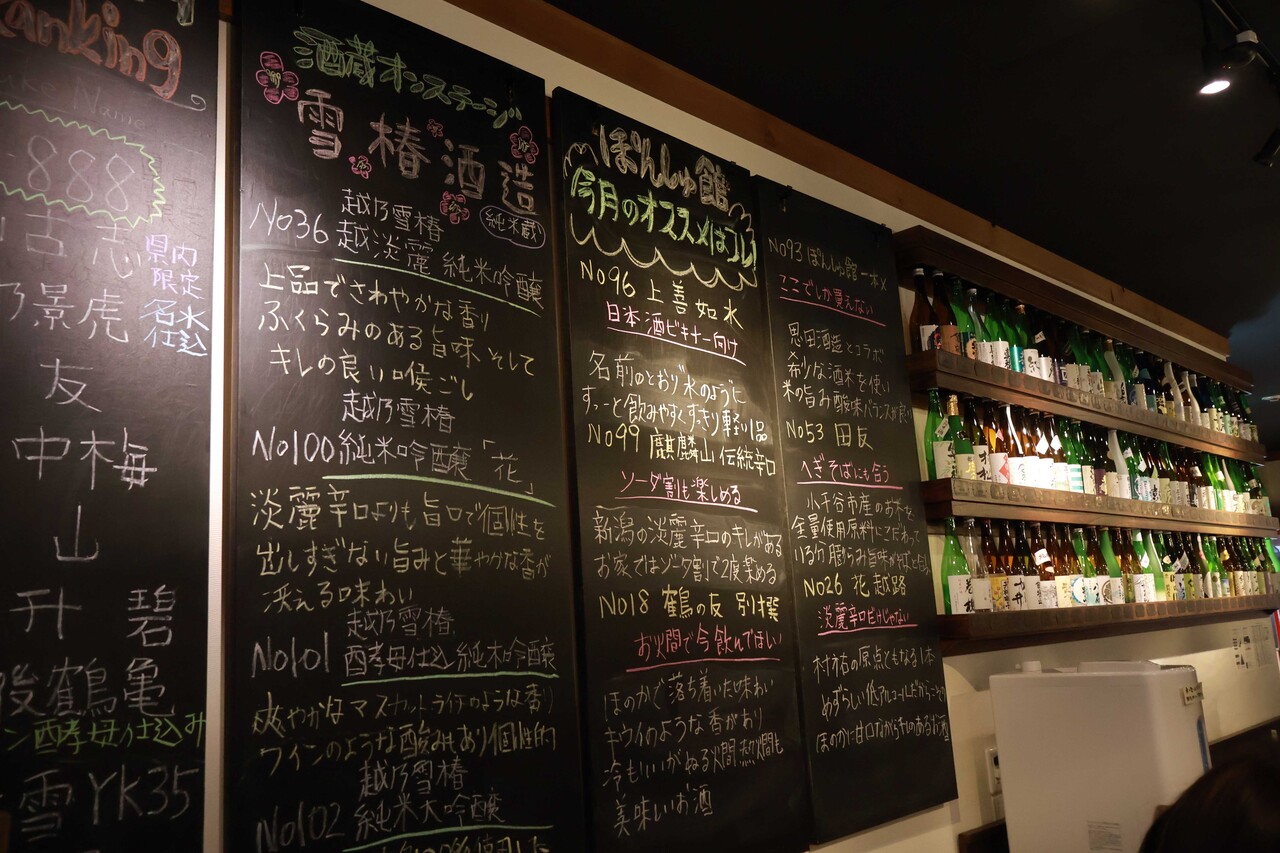 anking
ke Name
888
古志
県内
限定
名水
仕込
乃景虎
友
中梅
山
升 碧
後鶴亀
ン酵母仕込み
雪 YK35
酒蔵オンステージ
雪椿酒造
純米蔵
越乃雪椿
No36 越淡麗 純米吟醸
上品でさわやかな香り
ふくらみのある旨味 そして
キレの良い喉ごし
越乃雪椿
No100 純米吟醸「花」
淡麗辛口よりも旨口で個性を
出しすぎない旨みと華やかな香が
冴える味わい
越乃雪椿
No101 酉酵母仕込 純米吟醸
爽やかなマスカットライチのような香り
ワインのような酸みもあり個性的
越乃雪椿
No102 純米大吟醸
ぽんしゅ館
今月のオススメはコレ!
No96 上善如水
日本酒ビキナー向け
名前のとおり"水のように
すっーと飲みやすくすっきり軽い1品
No99 麒麟山 伝統辛口
ソーダ割も楽しめる
新潟の淡麗辛口のキレがある
お家ではソーダ割で2度楽める
No18 鶴の友 別撰
お火間で今飲んでほしい
ほのかで落ち着いた味わい
キウイのような香がおり
冷もいいがぬる火間 熱火間も
美味しいお酒
No93 ぽんしゅ館一本〆
ここでしか買えない
恩田酒造とコラボ
希少な酒米を使い
米の旨み酸味バランスが良い
No53 田友
へぎそばにも合う
小千谷市産のお米を
全量使用原料にこだわって
No26 花越路
淡麗辛口だけじゃない
村祐の原点ともなる1本
めずらしい低アルコールだからこその
ほのかに甘口ながらキレのあるお酒